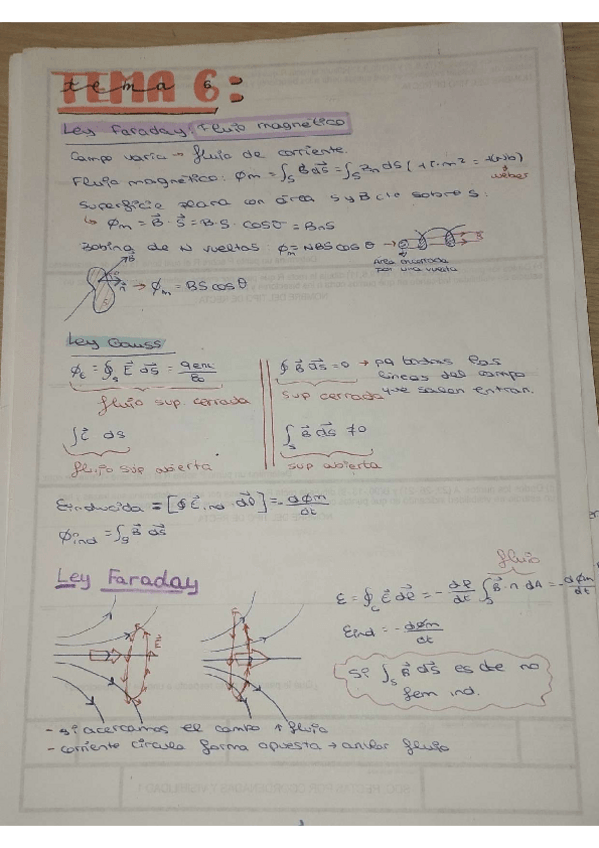 TEMA 6:
tema
Ley Faraday. Flujo magnético
Campo varia → fluja de corriente.
Flujo magnético: φm = ∫s B⃗ dS⃗ = ∫s Bn dS (1T·m² = 1Wb)
weber
Superficie plana con área S y B cte sobre S:
↳ φm = B⃗ · S⃗ = B·S· cosθ = BnS
Bobina de N vueltas: φm = NBS cos θ →
Área encerrada
por una vuelta
B⃗
n⃗ → φm = BS cos θ
Ley Gauss
φE = ∮s E⃗ dS⃗ = qenc/ε0
flujo sup. cerrada
∮ B⃗ dS⃗ = 0 → pq todas las
líneas del campo
que salen entran.
sup cerrada
∫E⃗ ds
flujo sup abierta
∫s B⃗ dS⃗ ≠0
sup abierta
Einducida = [∮ E⃗ind · dl⃗] = - dφm/dt
φind = ∫s B⃗ dS⃗
Ley Faraday
flujo
ε = ∮c E⃗ dl⃗ = - d/dt ∫s B⃗·n dA = - dφm/dt
Eind = - dφm/dt
Si ∫s B⃗ dS⃗ es cte no
fem ind.
- si acercamos el campo ↑ flujo
- corriente circula forma opuesta → anular flujo